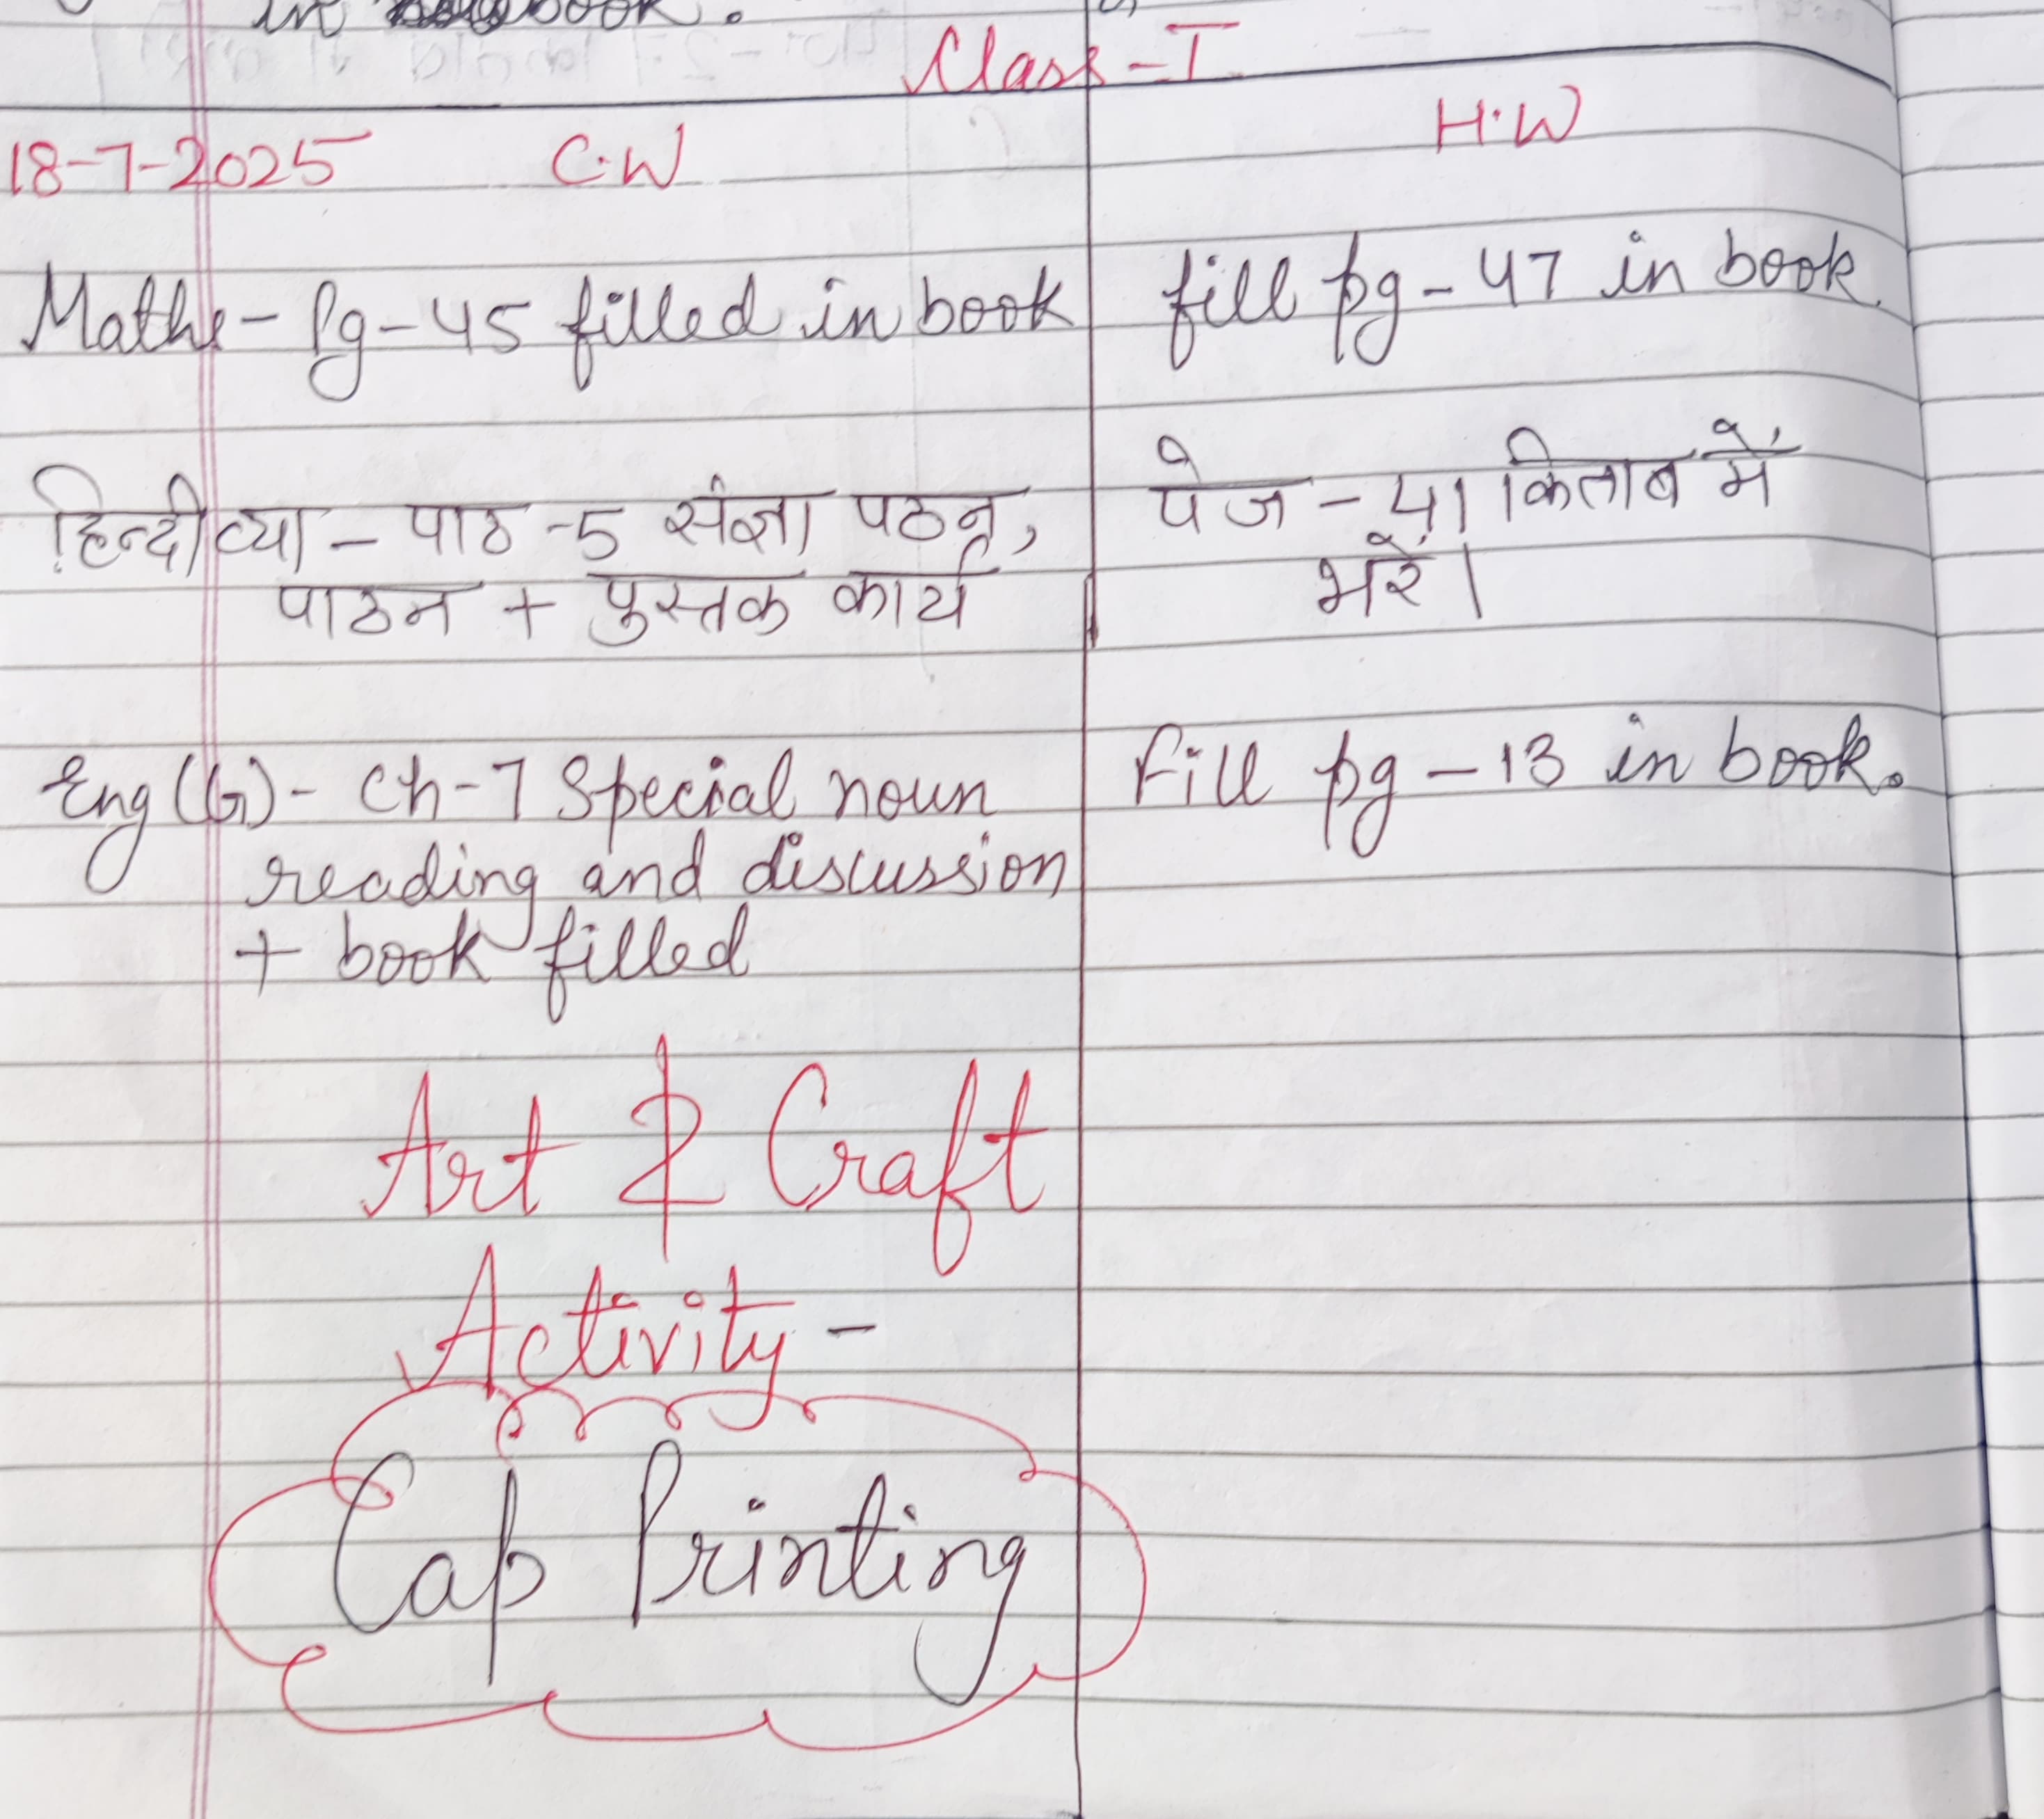 in book.
Class-I
18-7-2025 C.W H.W
Maths - Pg-45 filled in book fill pg-47 in book.
हिन्दी व्या - पाठ -5 संज्ञा पठन, पेज - 41 किताब में
पाठन + पुस्तक कार्य भरें।
Eng (G) - Ch-7 Special noun Fill pg-13 in book.
reading and discussion
+ book filled
Art & Craft
Activity -
Cap Printing